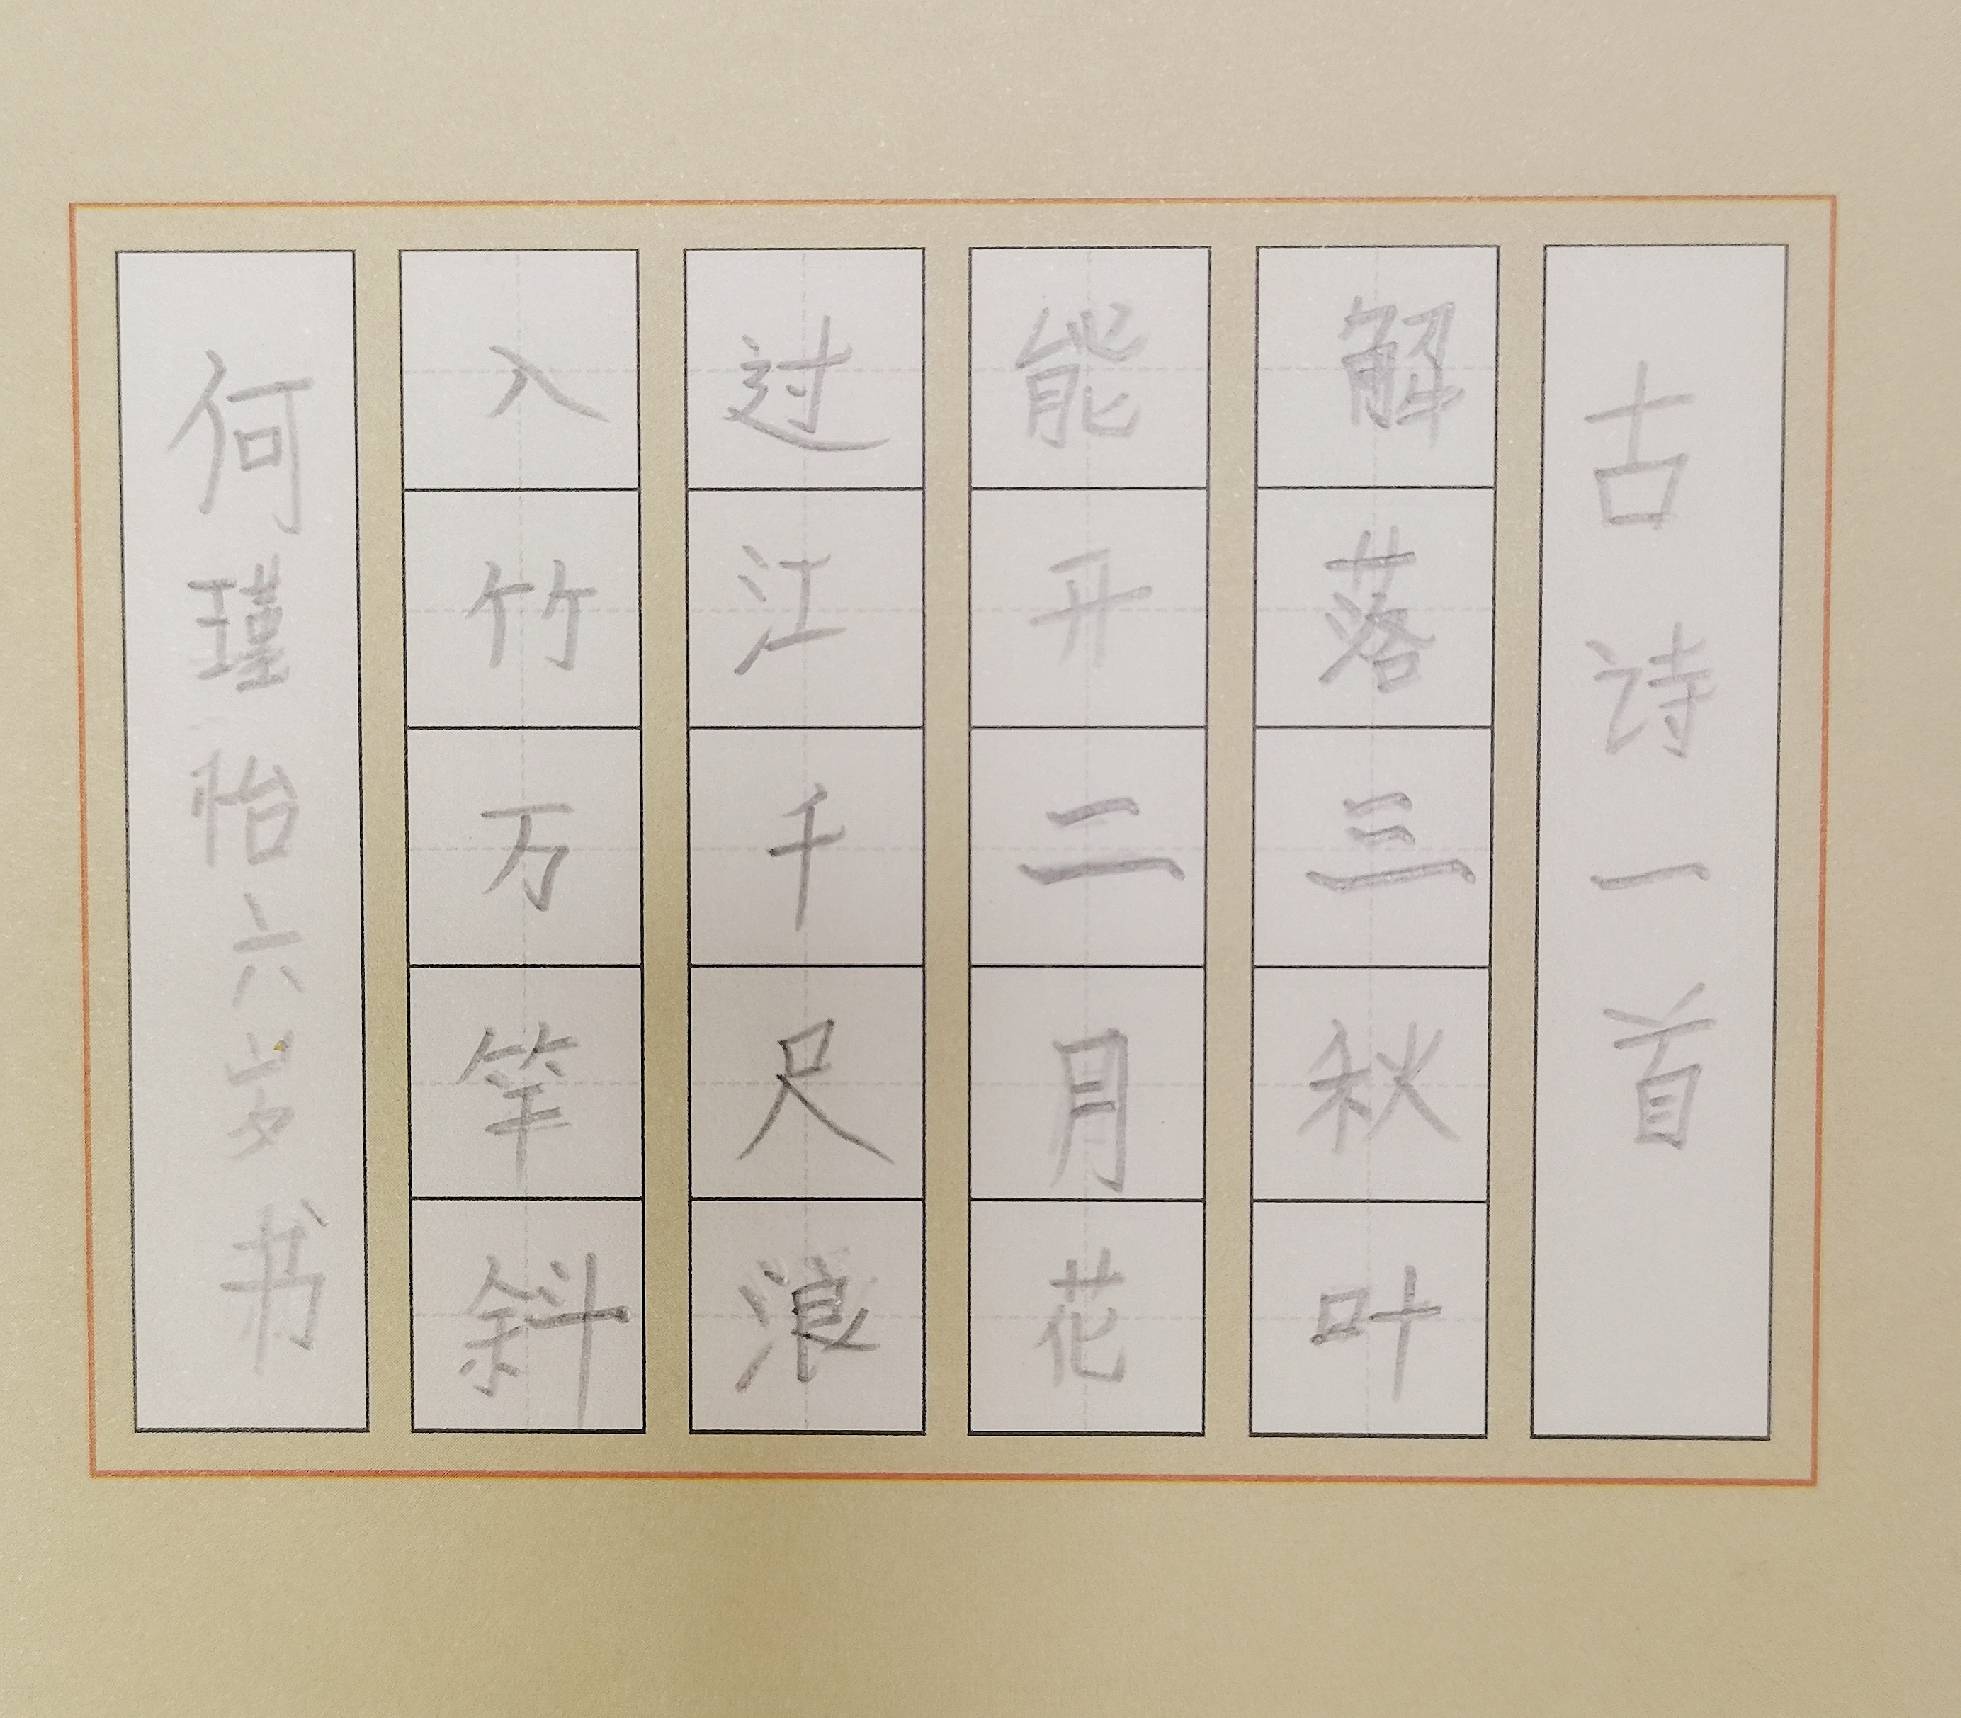 古诗一首
解落三秋叶
能开二月花
过江千尺浪
入竹万竿斜
何瑾怡六岁书